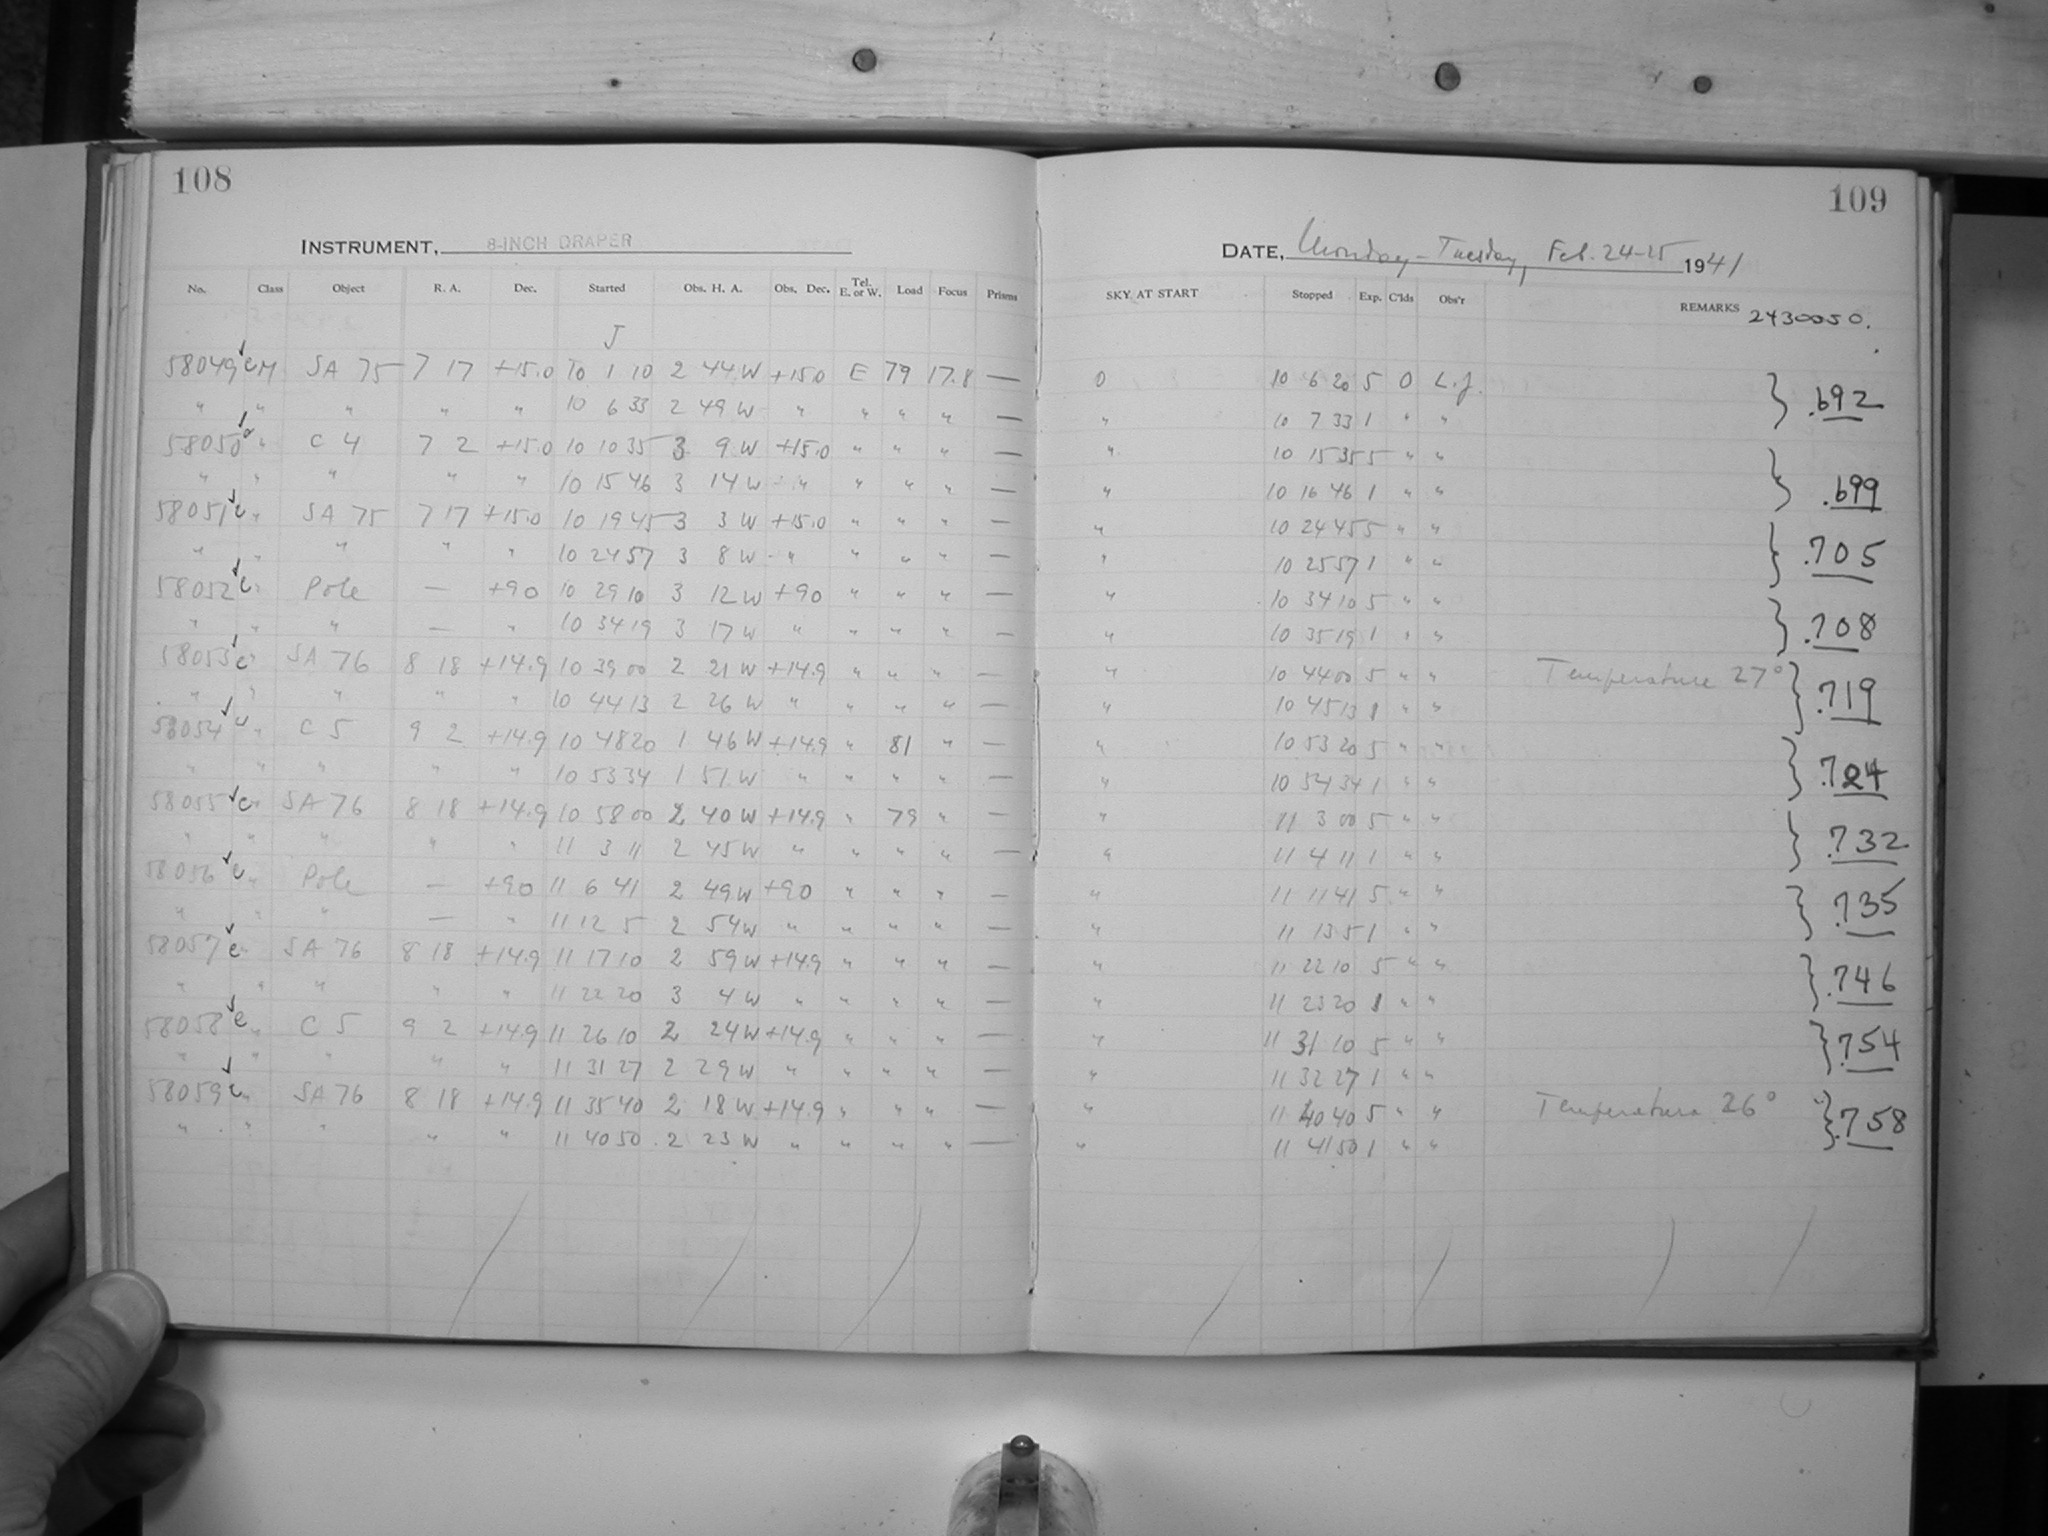 108
INSTRUMENT, 8-INCH DRAPER
No. Class Object R. A. Dec. Started Obs. H. A. Obs. Dec. Tel. E. or W. Load Focus Prisms
J
58049 c M SA 75 7 17 +15.0 10 1 10 2 44 W +15.0 E 79 17.8 —
" " " " " 10 6 33 2 49 W " " " " —
58050 " C 4 7 2 +15.0 10 10 35 3 9 W +15.0 " " " —
" " " " " 10 15 46 3 14 W " " " " —
58051 " SA 75 7 17 +15.0 10 19 45 3 3 W +15.0 " " " —
" " " " " 10 24 57 3 8 W " " " " —
58052 " Pole — +90 10 29 10 3 12 W +90 " " " —
" " " — " 10 34 19 3 17 W " " " " —
58053 c " SA 76 8 18 +14.9 10 39 00 2 21 W +14.9 " " " —
" " " " " 10 44 13 2 26 W " " " " —
58054 " C 5 9 2 +14.9 10 48 20 1 46 W +14.9 " 81 " —
" " " " " 10 53 34 1 51 W " " " " —
58055 c " SA 76 8 18 +14.9 10 58 00 2 40 W +14.9 " 79 " —
" " " " " 11 3 11 2 45 W " " " " —
58056 " Pole — +90 11 6 41 2 49 W +90 " " " —
" " " — " 11 12 5 2 54 W " " " " —
58057 c " SA 76 8 18 +14.9 11 17 10 2 59 W +14.9 " " " —
" " " " " 11 22 20 3 4 W " " " " —
58058 c " C 5 9 2 +14.9 11 26 10 2 24 W +14.9 " " " —
" " " " " 11 31 27 2 29 W " " " " —
58059 " SA 76 8 18 +14.9 11 35 40 2 18 W +14.9 " " " —
" " " " " 11 40 50 2 23 W " " " " —
109
DATE, Monday - Tuesday, Feb. 24-25 1941
SKY AT START Stopped Exp. C'lds Obs'r REMARKS 2430050.
0 10 6 20 5 0 L.J. } .692
" 10 7 33 1 " "
" 10 15 35 5 " " } .699
" 10 16 46 1 " "
" 10 24 45 5 " " } .705
" 10 25 57 1 " "
" 10 34 10 5 " " } .708
" 10 35 19 1 " "
" 10 44 00 5 " " Temperature 27° } .719
" 10 45 13 1 " "
" 10 53 20 5 " " } .724
" 10 54 34 1 " "
" 11 3 00 5 " " } .732
" 11 4 11 1 " "
" 11 11 41 5 " " } .735
" 11 13 5 1 " "
" 11 22 10 5 " " } .746
" 11 23 20 1 " "
" 11 31 10 5 " " } .754
" 11 32 27 1 " "
" 11 40 40 5 " " Temperature 26° } .758
" 11 41 50 1 " "